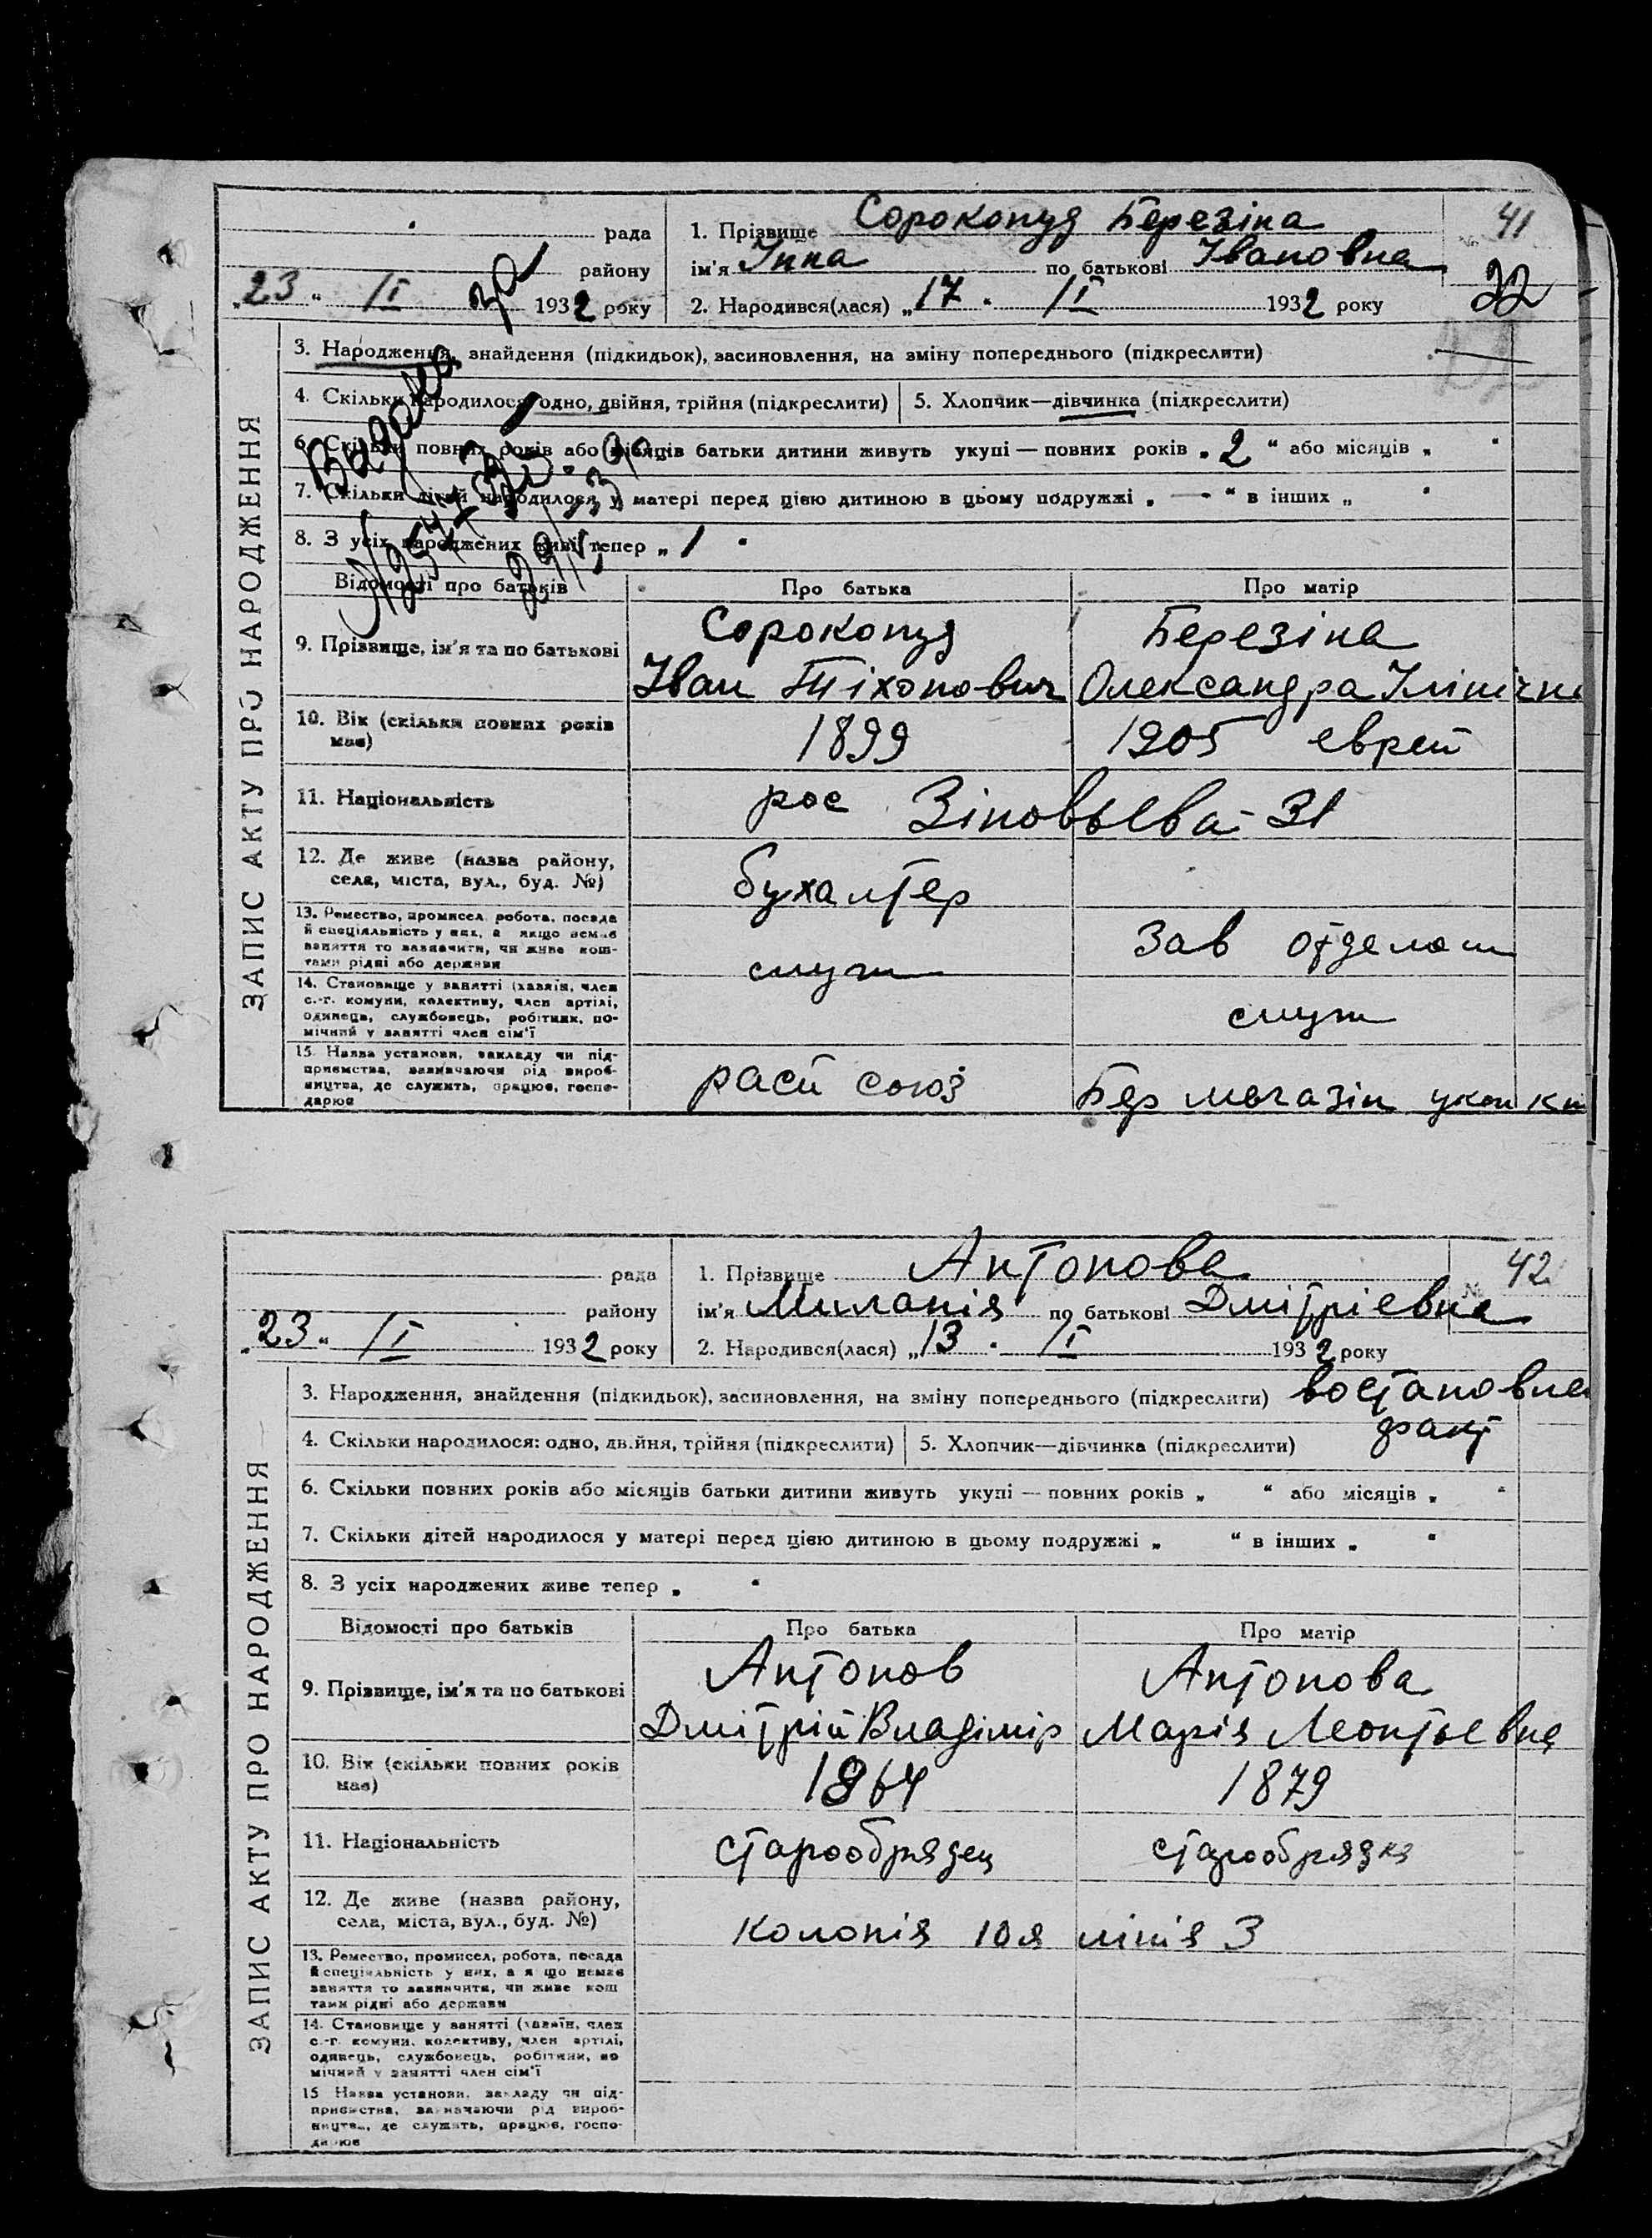 ЗАПИС АКТУ ПРО НАРОДЖЕННЯ
рада
району
„23“ II 1932 року
1. Прізвище Сорокопуд Березіна
ім'я Інна по батькові Івановна
2. Народився(лася) „17“ II 1932 року
№ 41
22
3. Народження, знайдення (підкидьок), засиновлення, на зміну попереднього (підкреслити)
4. Скільки народилося: одно, двійня, трійня (підкреслити)
5. Хлопчик—дівчинка (підкреслити)
6. Скільки повних років або місяців батьки дитини живуть укупі — повних років „2“ або місяців „ “
7. Скільки дітей народилося у матері перед цією дитиною в цьому подружжі „ — “ в інших „ “
8. З усіх народжених живе тепер „1“
Відомості про батьків
Про батька
Про матір
9. Прізвище, ім'я та по батькові
Сорокопуд
Іван Тіхонович
Березіна
Олександра Ілінічна
10. Вік (скільки повних років має)
1899
1905 еврей
11. Національність
рос Зіновьева 31
12. Де живе (назва району, села, міста, вул., буд. №)
бухалтер
13. Ремество, промисел, робота, посада й спеціяльність у них, а якщо немає заняття то зазначити, чи живе коштами рідні або держави
служ
Зав отделом
14. Становище у занятті (хазяїн, член с.-г. комуни, колективу, член артілі, одинець, службовець, робітник, помічний у занятті член сім'ї
служ
15. Назва установи, закладу чи підприємства, зазначаючи рід виробництва, де служить, працює, господарює
союз
магазін
ЗАПИС АКТУ ПРО НАРОДЖЕННЯ
рада
району
„23“ II 1932 року
1. Прізвище Антонова
ім'я Миланія по батькові Дмітріевна
2. Народився(лася) „13“ II 1932 року
№ 42
3. Народження, знайдення (підкидьок), засиновлення, на зміну попереднього (підкреслити) востановлен
факт
4. Скільки народилося: одно, двійня, трійня (підкреслити)
5. Хлопчик—дівчинка (підкреслити)
6. Скільки повних років або місяців батьки дитини живуть укупі — повних років „ “ або місяців „ “
7. Скільки дітей народилося у матері перед цією дитиною в цьому подружжі „ “ в інших „ “
8. З усіх народжених живе тепер „ “
Відомості про батьків
Про батька
Про матір
9. Прізвище, ім'я та по батькові
Антонов
Дмітрій Владімір
Антонова
Марія Леонтьевна
10. Вік (скільки повних років має)
1864
1879
11. Національність
старообрядец
старообрядка
12. Де живе (назва району, села, міста, вул., буд. №)
колонія 10я лінія 3
13. Ремество, промисел, робота, посада й спеціяльність у них, а якщо немає заняття то зазначити, чи живе коштами рідні або держави
14. Становище у занятті (хазяїн, член с.-г. комуни, колективу, член артілі, одинець, службовець, робітник, помічний у занятті член сім'ї
15. Назва установи, закладу чи підприємства, зазначаючи рід виробництва, де служить, працює, господарює